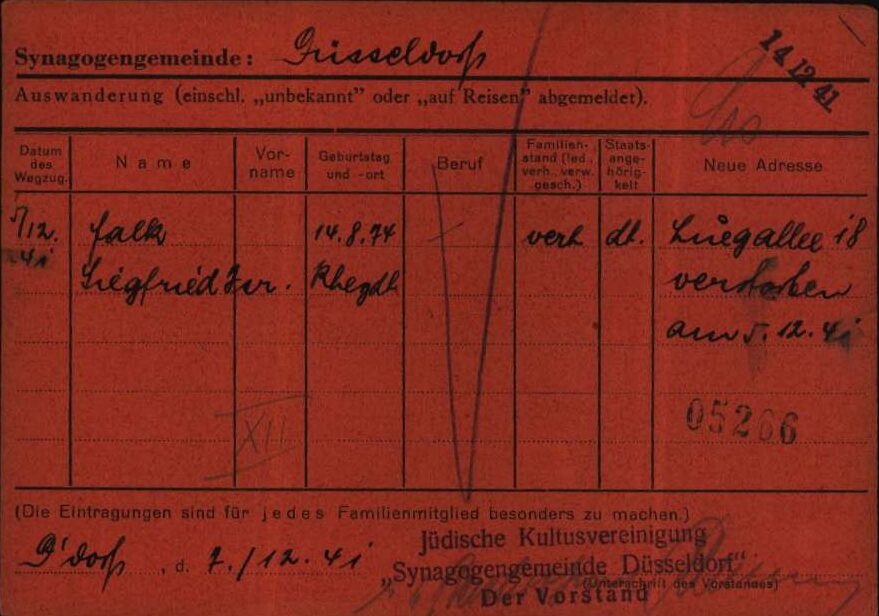 14.12.41
Synagogengemeinde: Düsseldorf
Auswanderung (einschl. „unbekannt" oder „auf Reisen" abgemeldet).
Datum des Wegzug. Name Vor-name Geburtstag und -ort Beruf Familien-stand (led., verh., verw. gesch.) Staats-ange-hörig-keit Neue Adresse
5/12. Falk 14.8.74 – verh. dt. Luegallee 18
41 Siegfried Isr. Rheydt verstorben
am 5.12.41
05266
XII
(Die Eintragungen sind für jedes Familienmitglied besonders zu machen.)
D'dorf, d. 7./12.41
Jüdische Kultusvereinigung
„Synagogengemeinde Düsseldorf"
(Unterschrift des Vorstandes)
Der Vorstand